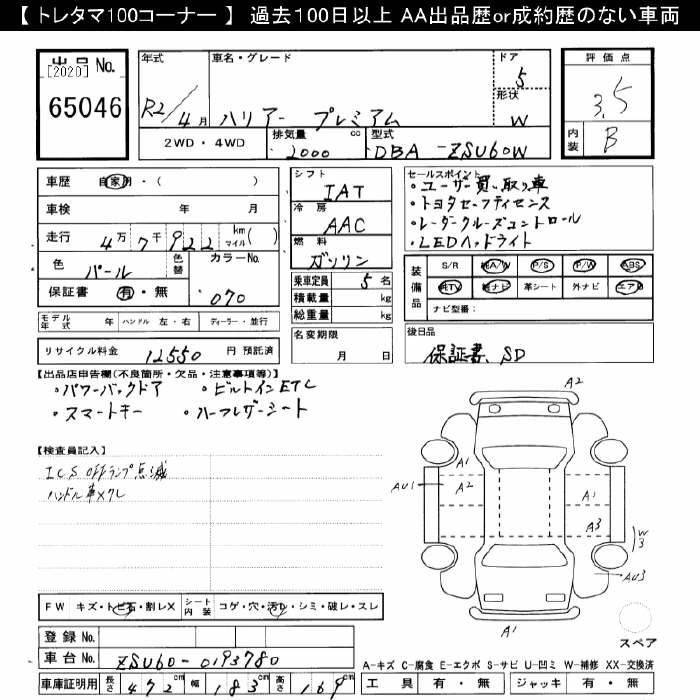 【 トレタマ100コーナー 】 過去100日以上 AA出品歴or成約歴のない車両
出品 No.
[2020]
65046
年式
R2/4月
車名・グレード
ハリアー プレミアム
ドア
5
形状
W
評価点
3.5
内装
B
2WD・4WD
排気量
2000
cc
型式
DBA -ZSU60W
車歴 自家用・( )
車検 年 月
走行 4万7千922 km マイル( )
色 パール 色替
カラーNo.
070
保証書 有・無
モデル年式 年 ハンドル 左・右 ディーラー・並行
リサイクル料金 12550 円 預託済
シフト
IAT
冷房
AAC
燃料
ガソリン
乗車定員 5名
積載量 kg
総重量 kg
名変期限
月 日
セールスポイント
・ユーザー買い取り車
・トヨタセーフティセンス
・レーダークルーズコントロール
・LEDヘッドライト
装備品
S/R 純A/W P/S P/W ABS
純TV 純ナビ 革シート 外ナビ エアB
ナビ型番:
後日品
保証書、SD
【出品店申告欄(不良箇所・欠品・注意事項等)】
・パワーバックドア ・ビルトインETC
・スマートキー ・ハーフレザーシート
【検査員記入】
ICS OFFランプ点滅
ハンドル革スレ
A2
A1
A2
AU1
A1
A3
W3
AU3
A1
スペア
FW キズ・トビ石・割レX シート内装 コゲ・穴・汚レ・シミ・破レ・スレ
登録 No.
車台 No. ZSU60-0193780
車庫証明用 長さ 472cm 幅 183cm 高さ 169cm
A-キズ C-腐食 E-エクボ S-サビ U-凹ミ W-補修 XX-交換済
工具 有・無 ジャッキ 有・無